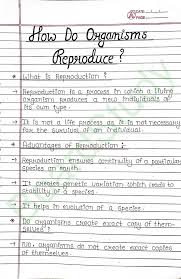 How Do Organisms
Reproduce ?
What is Reproduction ?
Reproduction is a process in which a living
organism produces a new individuals of
its own type.
It is not a life process as it is not necessary
for the survival of an individual.
Advantages of Reproduction :
Reproduction ensures continuity of a particular
species on earth.
It creates genetic variation which leads to
stability of a species.
It helps in evolution of a species.
Do organisms create exact copy of them-
selves?
No, organisms do not create exact copies
of themselves.